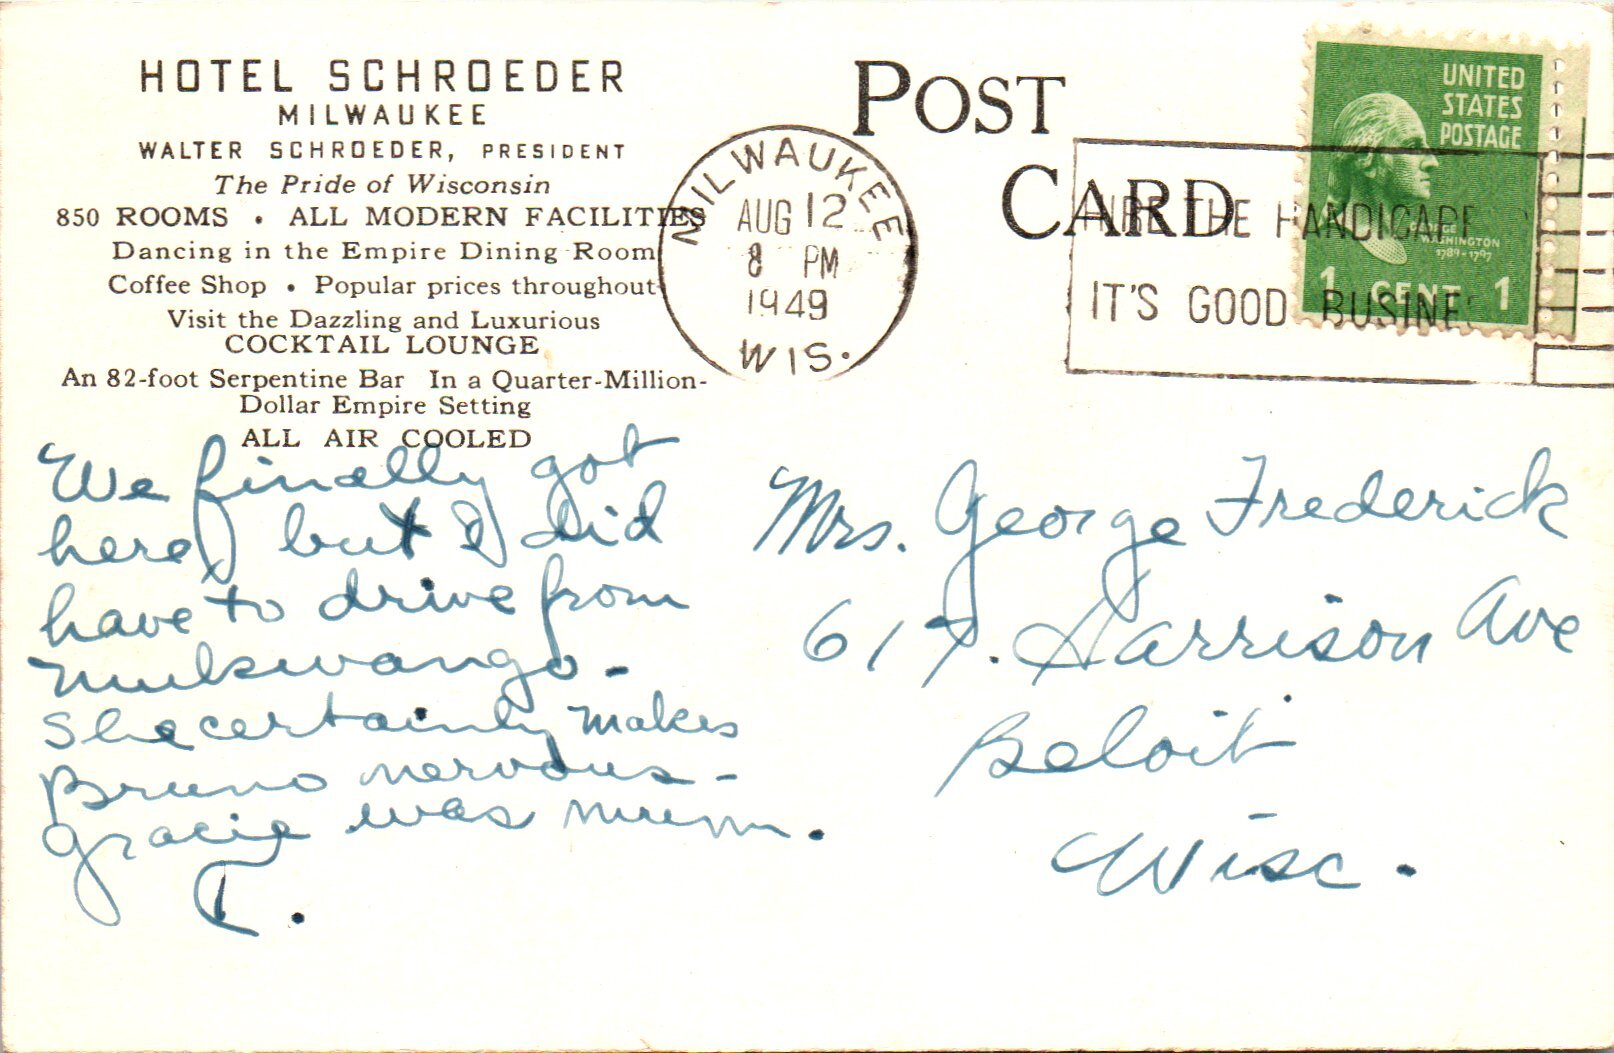 HOTEL SCHROEDER
MILWAUKEE
WALTER SCHROEDER, PRESIDENT
The Pride of Wisconsin
850 ROOMS • ALL MODERN FACILITIES
Dancing in the Empire Dining Room
Coffee Shop • Popular prices throughout
Visit the Dazzling and Luxurious
COCKTAIL LOUNGE
An 82-foot Serpentine Bar In a Quarter-Million-
Dollar Empire Setting
ALL AIR COOLED
We finally got
here, but I did
have to drive from
Mukwango -
She certainly makes
Bruno nervous -
Gracie was
T.
POST
CARD
MILWAUKEE
AUG 12
8 PM
1949
WIS.
HIRE THE HANDICAPP
IT'S GOOD BUSINE
UNITED
STATES
POSTAGE
GEORGE
WASHINGTON
1789-1797
1 CENT 1
Mrs. George Frederick
617. Harrison Ave
Beloit
Wisc.